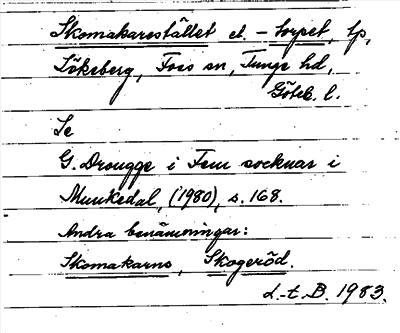 Skomakarestället el. -torpet, tp,
Sökeberg, Foss sn, Tunge hd,
Göteb. l.
Se
G. Drougge i Fem socknar i
Munkedal, (1980), s. 168.
Andra benämningar:
Skomakarns, Skogeröd.
L.-t. B. 1983.